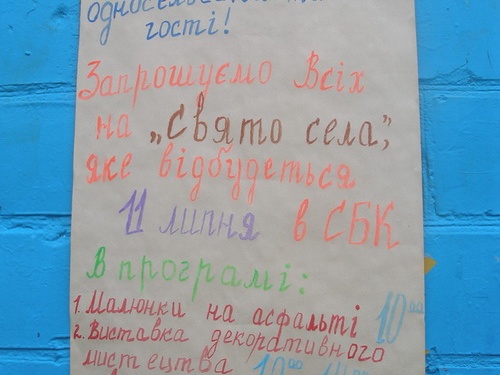 односельчани та
гості!
Запрошуємо Всіх
на „Свято села”,
яке відбудеться
11 липня в СБК
В програмі:
1. Малюнки на асфальті 10⁰⁰
2. Виставка декоративного
мистецтва 10⁰⁰